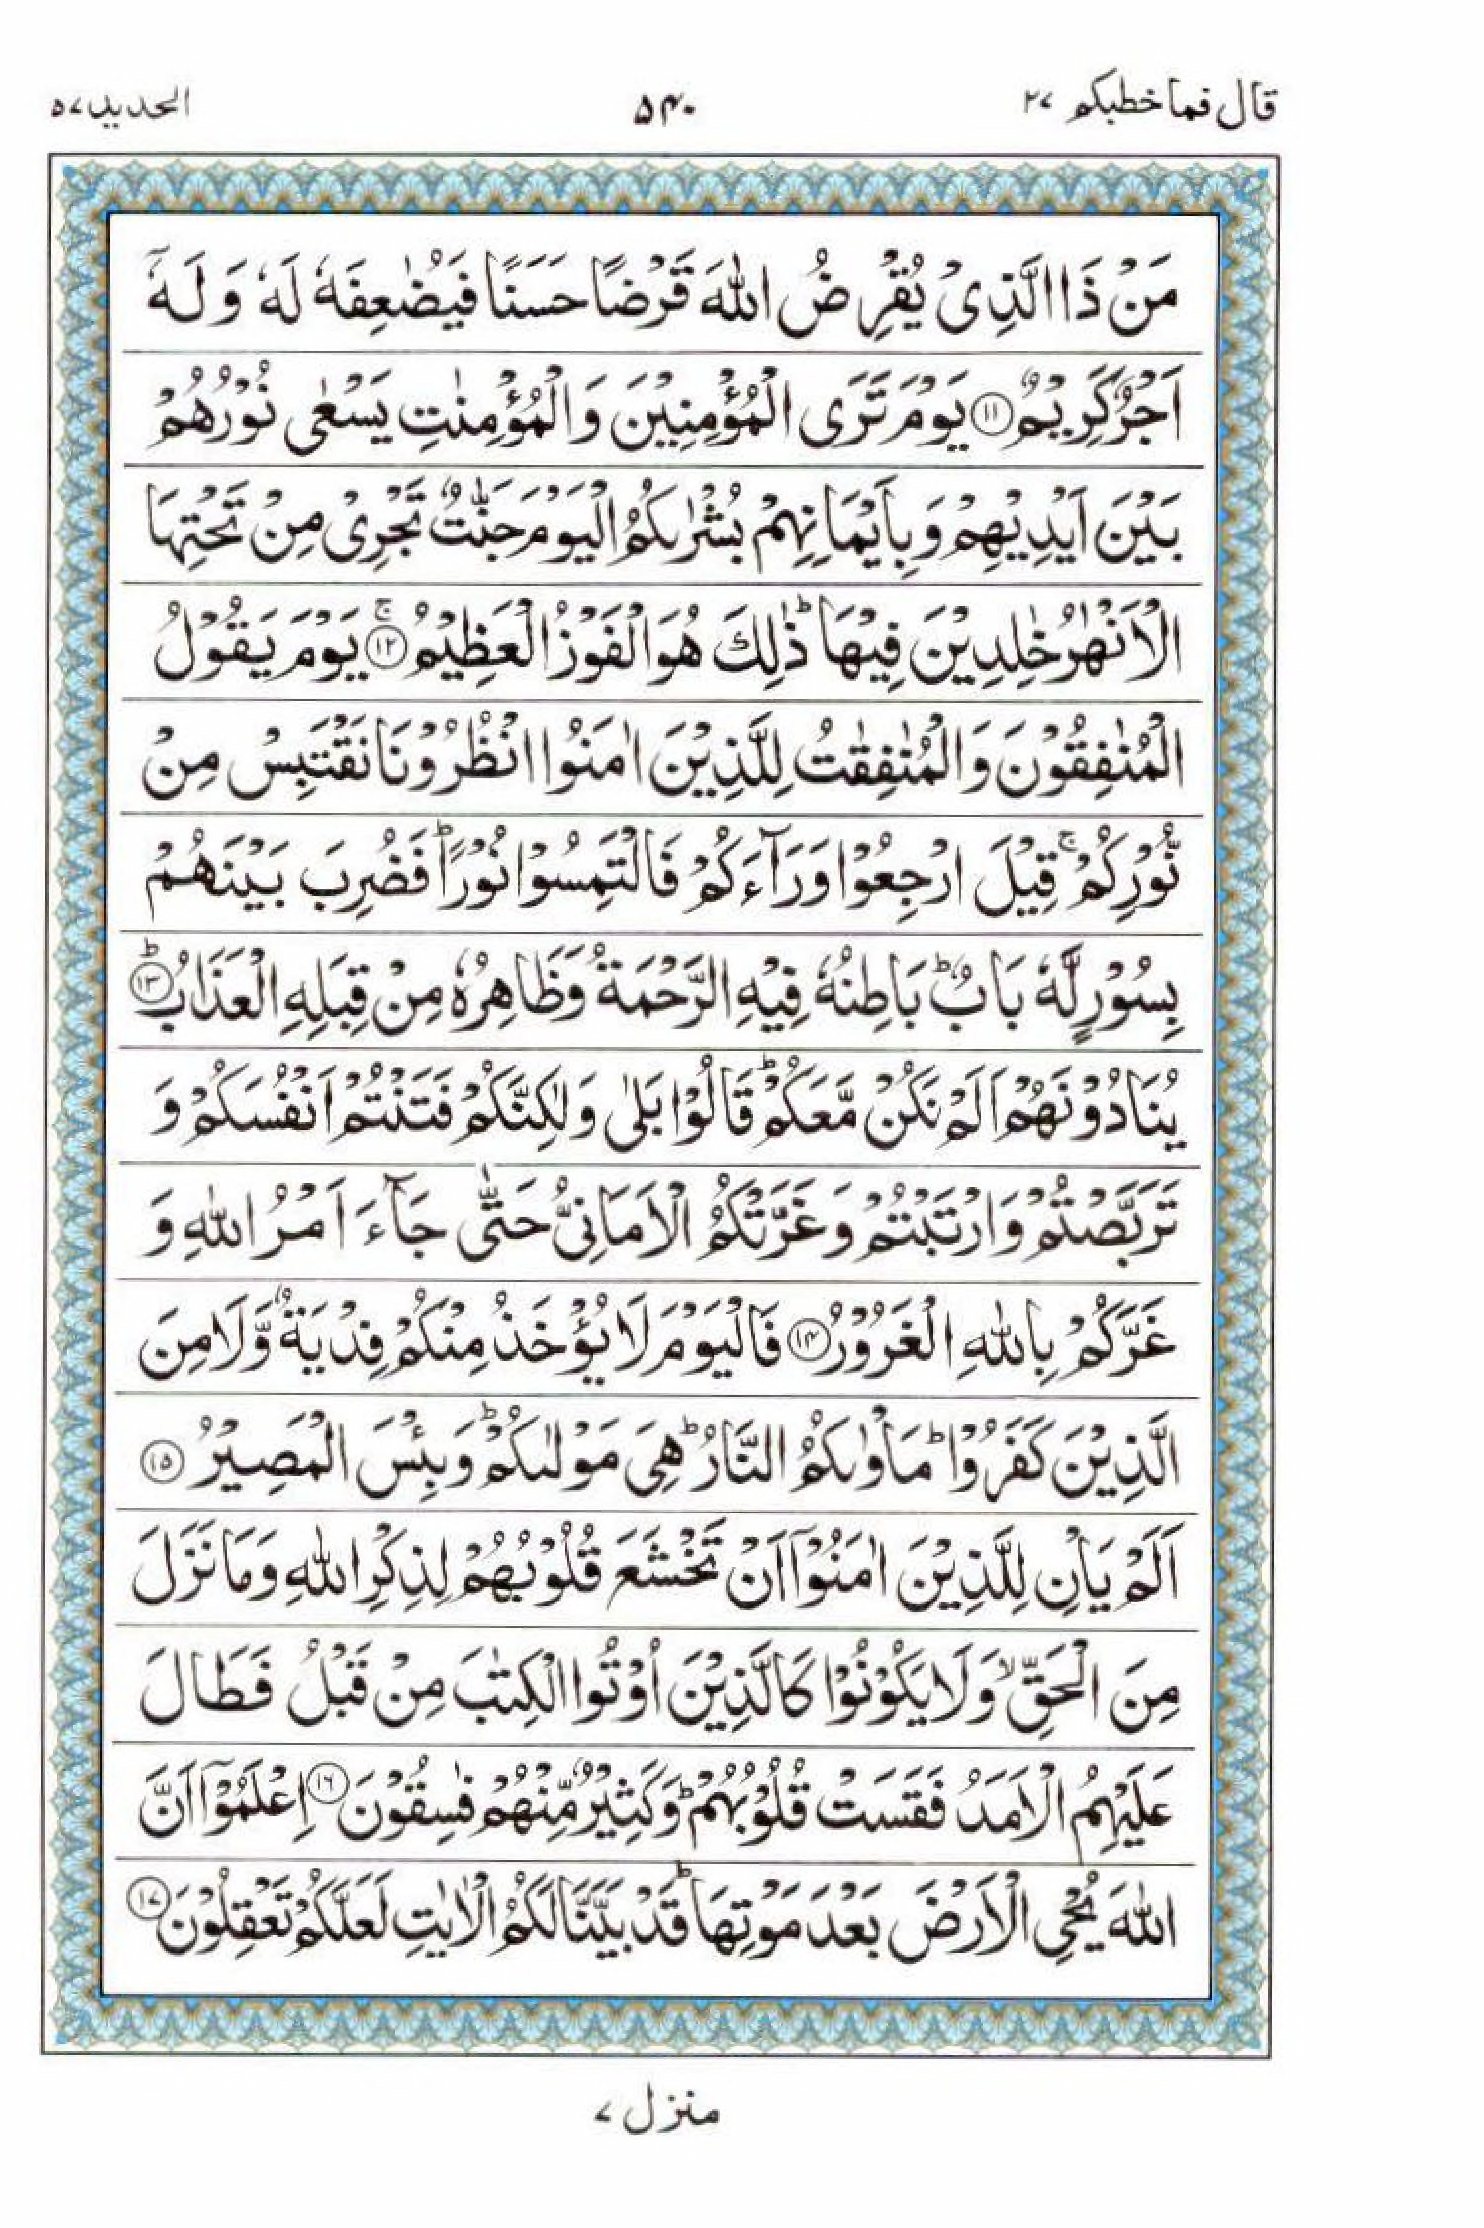 قال فما خطبكم ۲۷ ۵۴۰ الحديد ۵۷
مَنۡ ذَا الَّذِىۡ يُقۡرِضُ اللّٰهَ قَرۡضًا حَسَنًا فَيُضٰعِفَهٗ لَهٗ وَلَهٗۤ
اَجۡرٌ كَرِيۡمٌ ۙ‏﴿۱۱﴾ يَوۡمَ تَرَى الۡمُؤۡمِنِيۡنَ وَالۡمُؤۡمِنٰتِ يَسۡعٰى نُوۡرُهُمۡ
بَيۡنَ اَيۡدِيۡهِمۡ وَبِاَيۡمَانِهِمۡ بُشۡرٰٮكُمُ الۡيَوۡمَ جَنّٰتٌ تَجۡرِىۡ مِنۡ تَحۡتِهَا
الۡاَنۡهٰرُ خٰلِدِيۡنَ فِيۡهَاؕ ذٰلِكَ هُوَ الۡفَوۡزُ الۡعَظِيۡمُ‌ۚ‏﴿۱۲﴾ يَوۡمَ يَقُوۡلُ
الۡمُنٰفِقُوۡنَ وَالۡمُنٰفِقٰتُ لِلَّذِيۡنَ اٰمَنُوا انْظُرُوۡنَا نَقۡتَبِسۡ مِنۡ
نُّوۡرِكُمۡ‌ۚ قِيۡلَ ارۡجِعُوۡا وَرَآءَكُمۡ فَالۡتَمِسُوۡا نُوۡرًاؕ فَضُرِبَ بَيۡنَهُمۡ
بِسُوۡرٍ لَّهٗ بَابٌؕ بَاطِنُهٗ فِيۡهِ الرَّحۡمَةُ وَظَاهِرُهٗ مِنۡ قِبَلِهِ الۡعَذَابُؕ‏﴿۱۳﴾
يُنَادُوۡنَهُمۡ اَلَمۡ نَكُنۡ مَّعَكُمۡ‌ؕ قَالُوۡا بَلٰى وَلٰكِنَّكُمۡ فَتَنۡتُمۡ اَنۡفُسَكُمۡ وَ
تَرَبَّصۡتُمۡ وَارۡتَبۡتُمۡ وَغَرَّتۡكُمُ الۡاَمَانِىُّ حَتّٰى جَآءَ اَمۡرُ اللّٰهِ وَ
غَرَّكُمۡ بِاللّٰهِ الۡغَرُوۡرُ‏﴿۱۴﴾ فَالۡيَوۡمَ لَا يُؤۡخَذُ مِنۡكُمۡ فِدۡيَةٌ وَّلَا مِنَ
الَّذِيۡنَ كَفَرُوۡا‌ؕ مَاۡوٰٮكُمُ النَّارُ‌ؕ هِىَ مَوۡلٰٮكُمۡ‌ؕ وَبِئۡسَ الۡمَصِيۡرُ‏﴿۱۵﴾
اَلَمۡ يَاۡنِ لِلَّذِيۡنَ اٰمَنُوۡۤا اَنۡ تَخۡشَعَ قُلُوۡبُهُمۡ لِذِكۡرِ اللّٰهِ وَمَا نَزَلَ
مِنَ الۡحَقِّۙ وَلَا يَكُوۡنُوۡا كَالَّذِيۡنَ اُوۡتُوا الۡكِتٰبَ مِنۡ قَبۡلُ فَطَالَ
عَلَيۡهِمُ الۡاَمَدُ فَقَسَتۡ قُلُوۡبُهُمۡ‌ؕ وَكَثِيۡرٌ مِّنۡهُمۡ فٰسِقُوۡنَ‏﴿۱۶﴾ اِعۡلَمُوۡۤا اَنَّ
اللّٰهَ يُحۡىِ الۡاَرۡضَ بَعۡدَ مَوۡتِهَا‌ؕ قَدۡ بَيَّنَّا لَكُمُ الۡاٰيٰتِ لَعَلَّكُمۡ تَعۡقِلُوۡنَ‏﴿۱۷﴾
منزل ۷